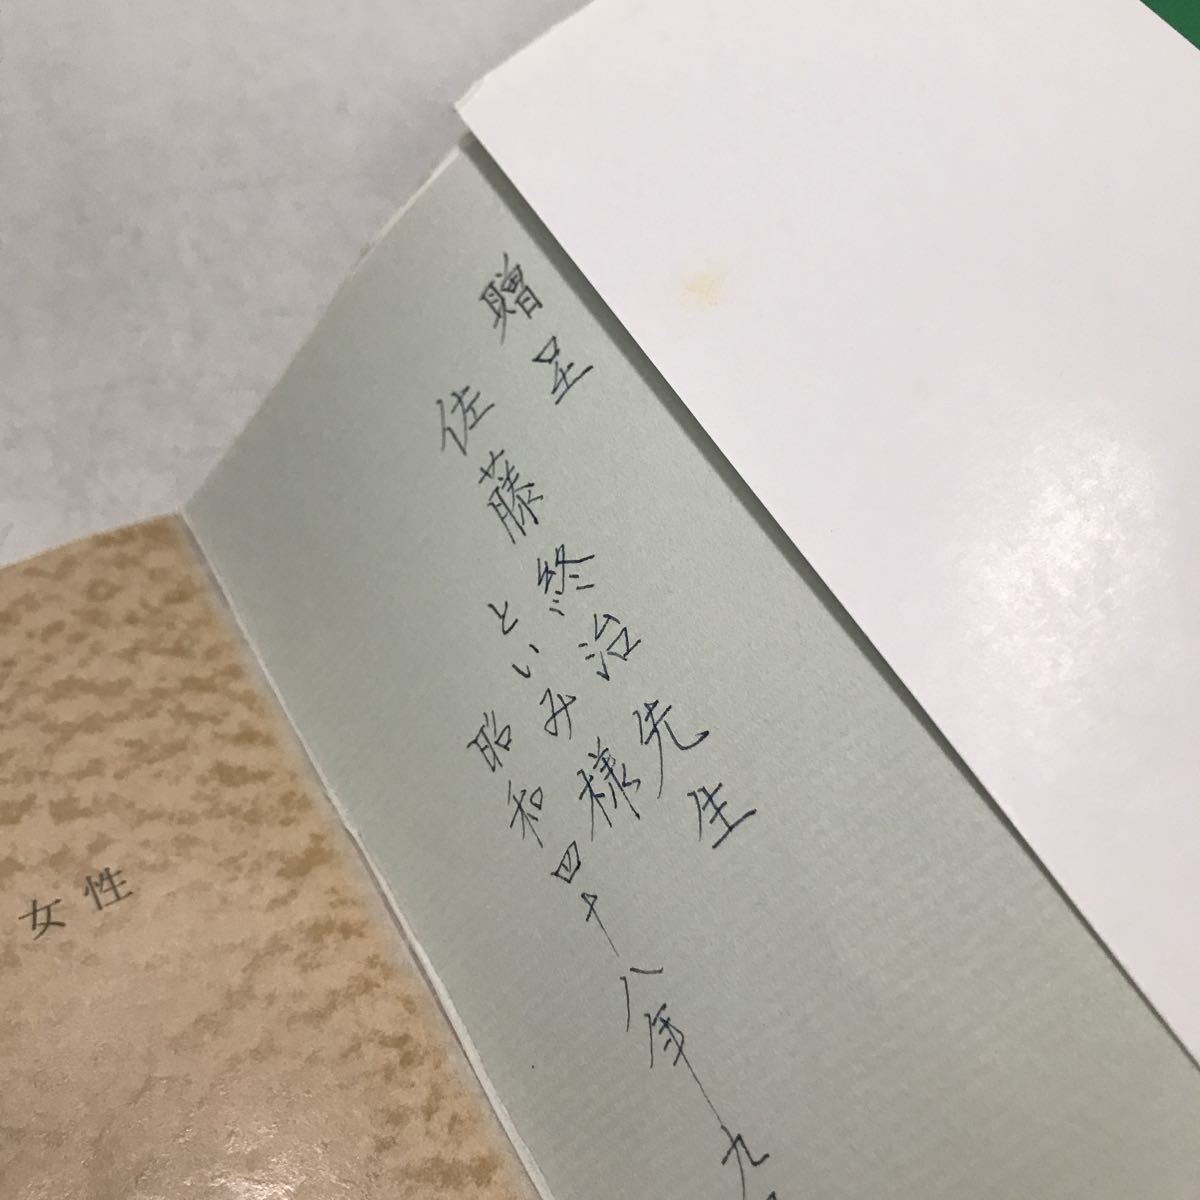 贈呈
佐藤終治先生
といみ様
昭和四十八年九
女性